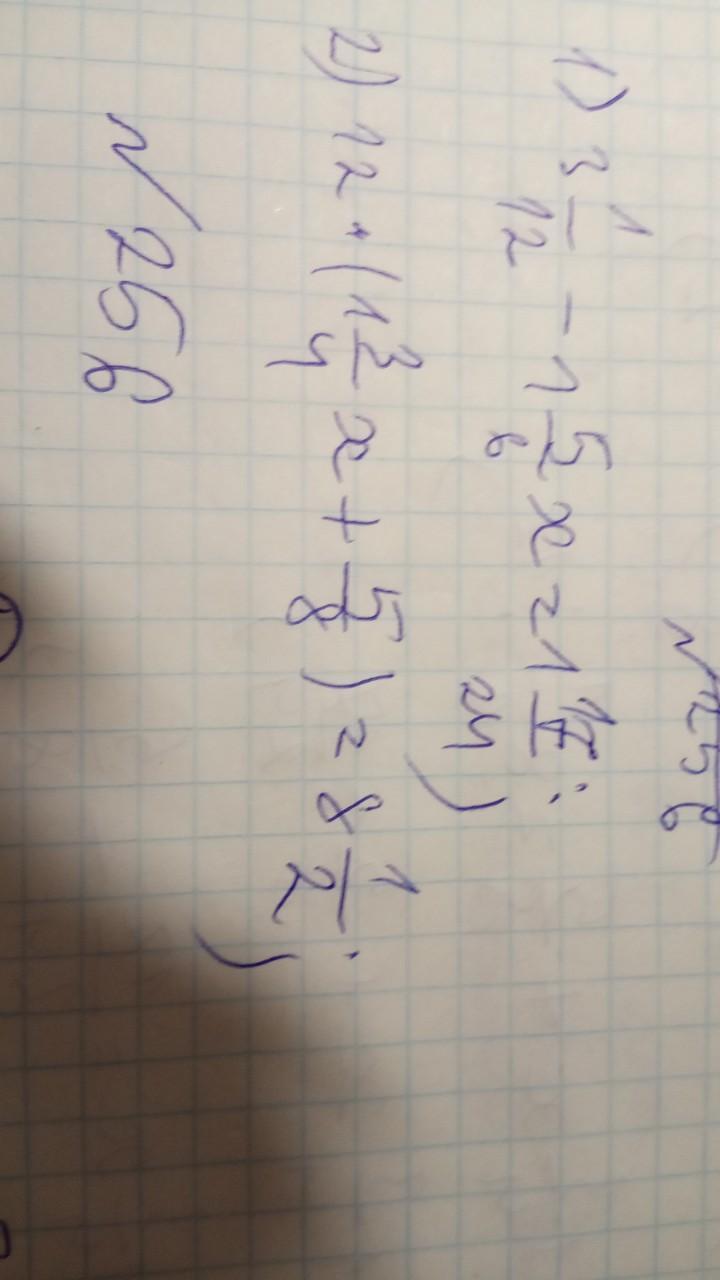 № 256
1) 3 1/12 - 1 5/6 x = 1 17/24;
2) 12 · (1 3/4 x + 5/8) = 8 1/2;
№ 256